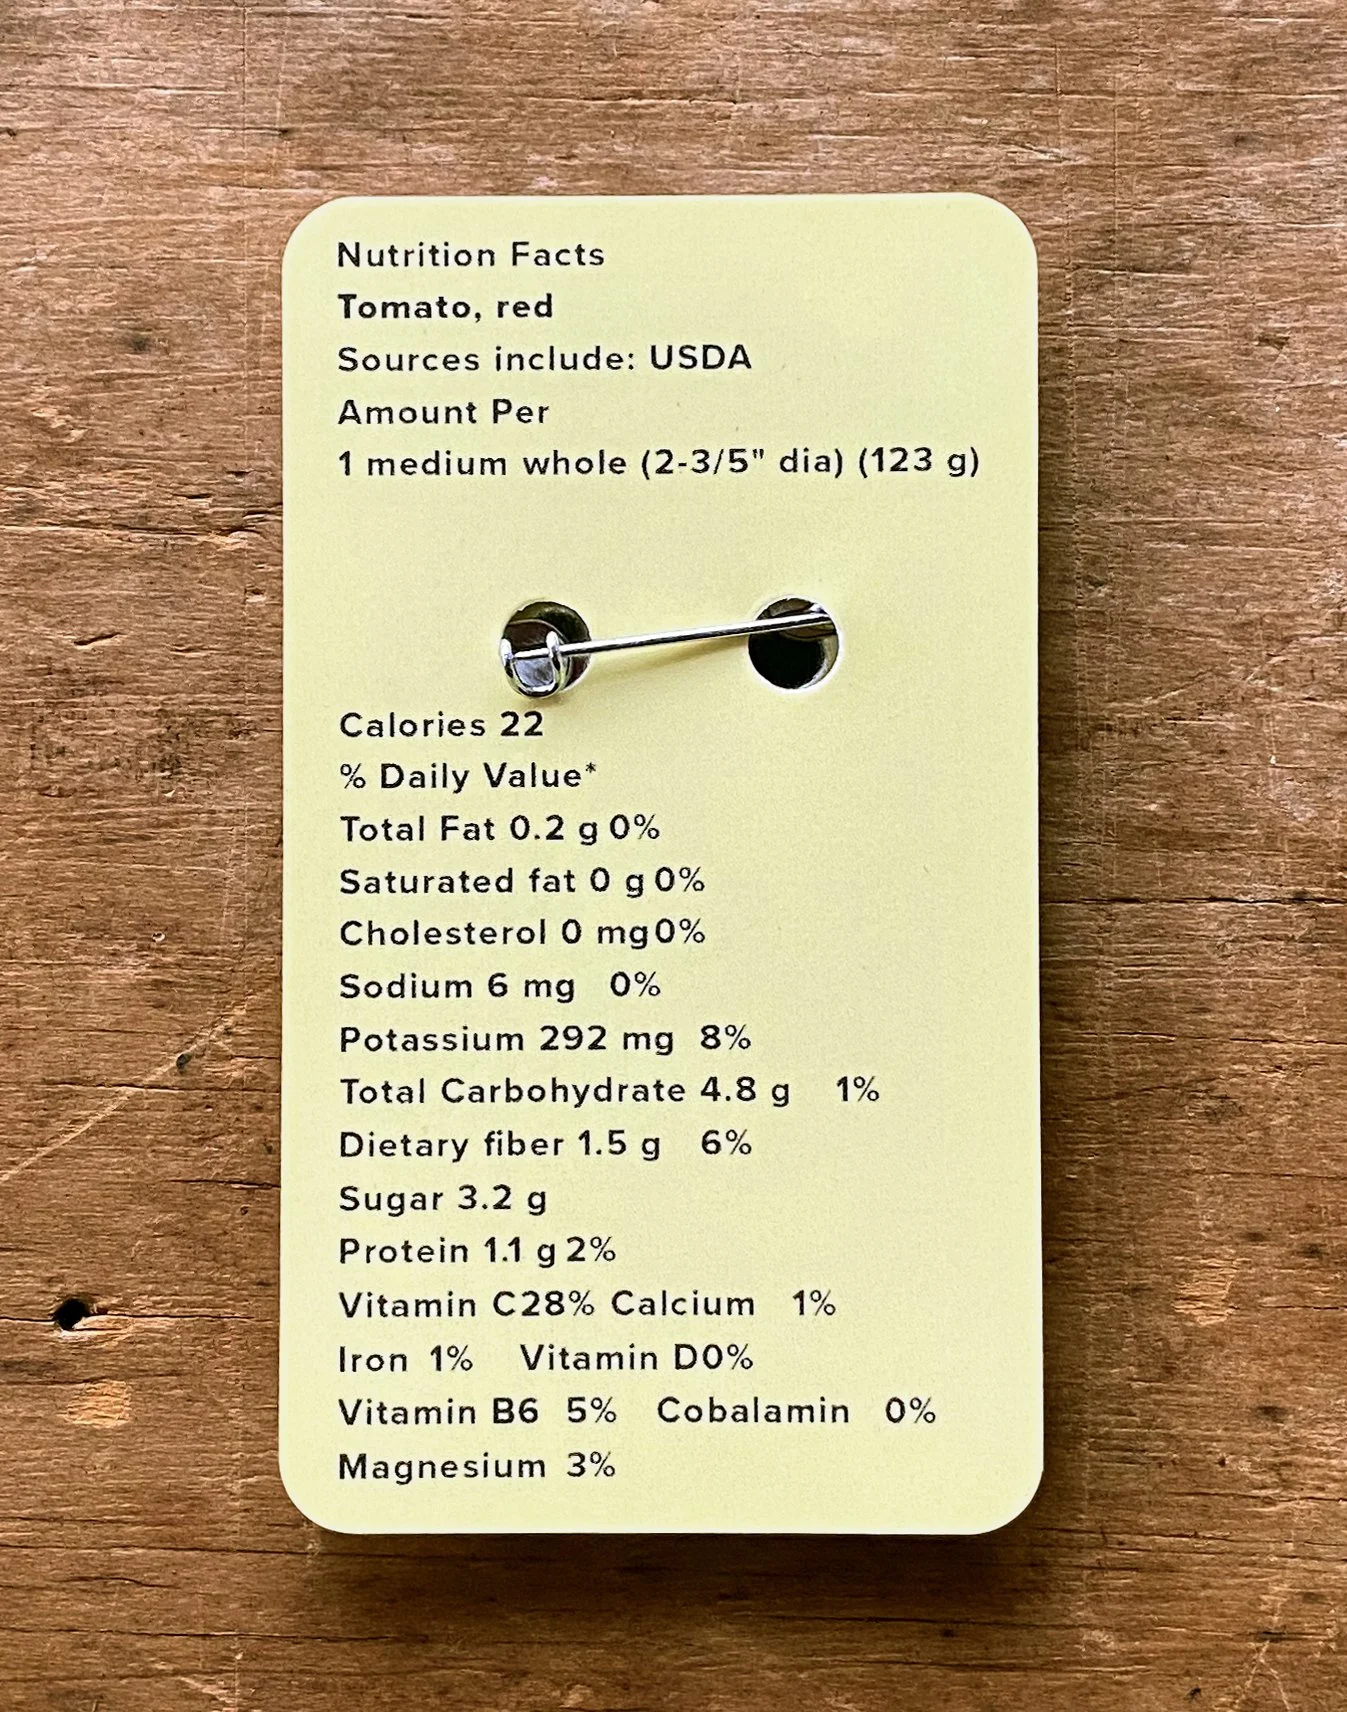 Nutrition Facts
Tomato, red
Sources include: USDA
Amount Per
1 medium whole (2-3/5" dia) (123 g)
Calories 22
% Daily Value*
Total Fat 0.2 g 0%
Saturated fat 0 g 0%
Cholesterol 0 mg 0%
Sodium 6 mg 0%
Potassium 292 mg 8%
Total Carbohydrate 4.8 g 1%
Dietary fiber 1.5 g 6%
Sugar 3.2 g
Protein 1.1 g 2%
Vitamin C 28% Calcium 1%
Iron 1% Vitamin D 0%
Vitamin B6 5% Cobalamin 0%
Magnesium 3%